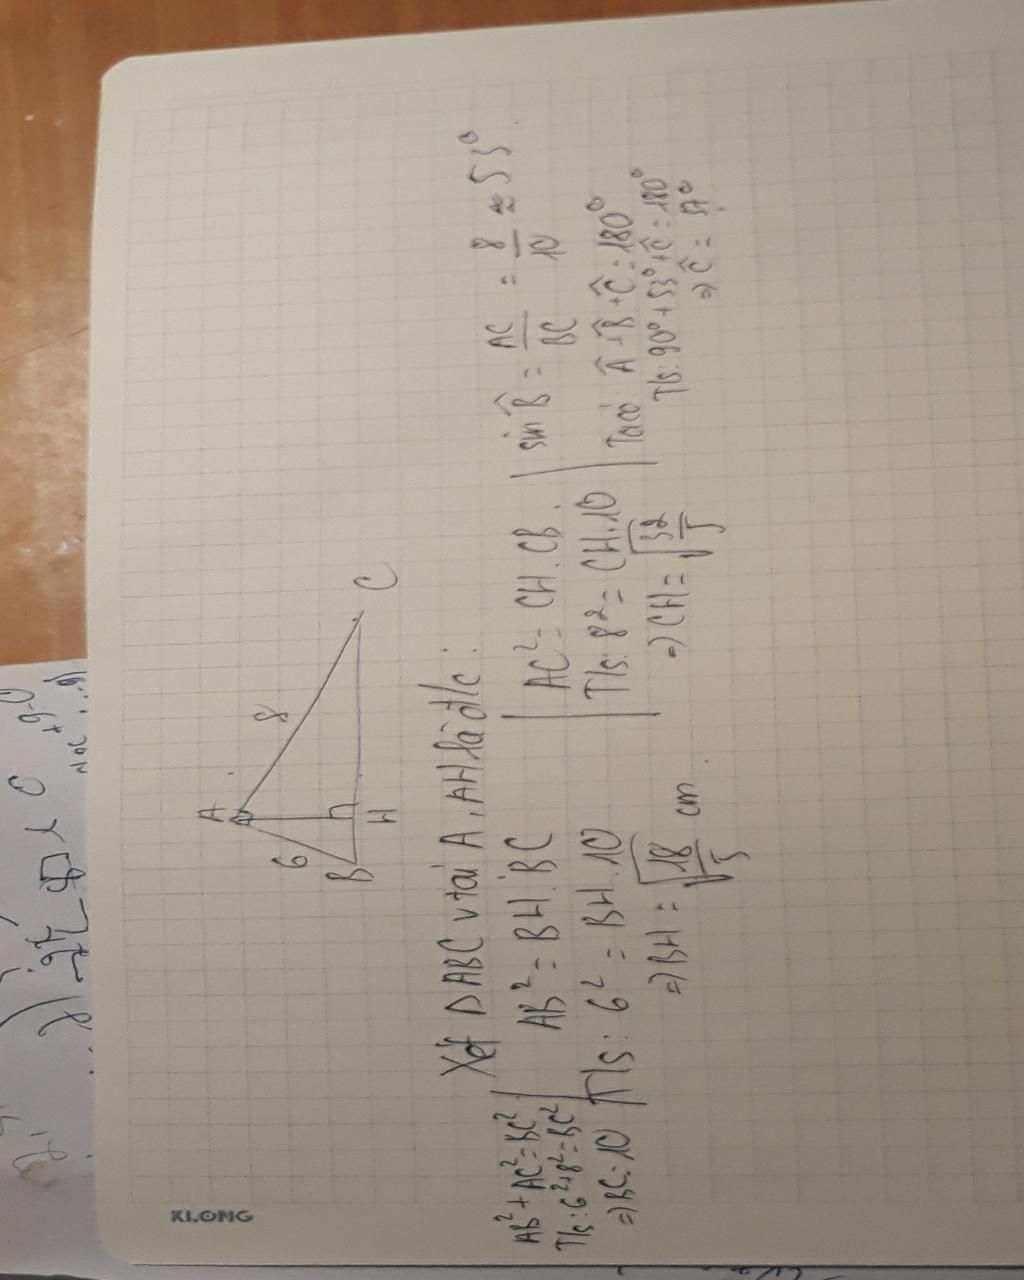 A
6
8
B
H
C
Xét ΔABC v tại A, AH là đ/c:
AB² + AC² = BC²
T/s: 6² + 8² = BC²
=> BC = 10
AB² = BH . BC
T/s: 6² = BH . 10
=> BH = √18/5 cm
AC² = CH . CB
T/s: 8² = CH . 10
=> CH = √32/5
sin B̂ = AC/BC = 8/10 ≈ 53°
Ta có Â + B̂ + Ĉ = 180°
T/s: 90° + 53° + Ĉ = 180°
=> Ĉ = 37°
KLONG